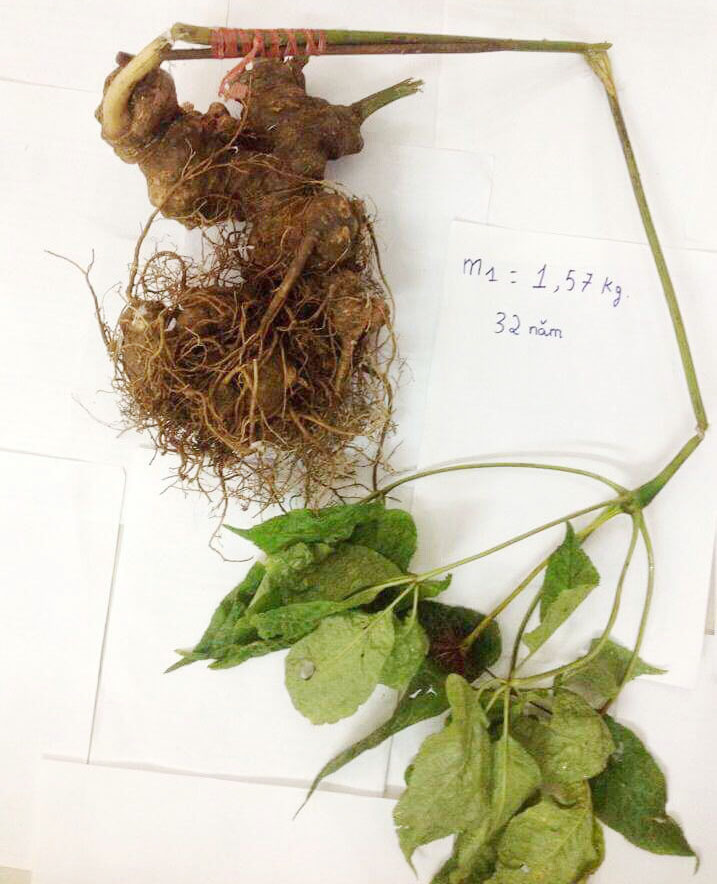 m1 = 1,57 kg.
32 năm